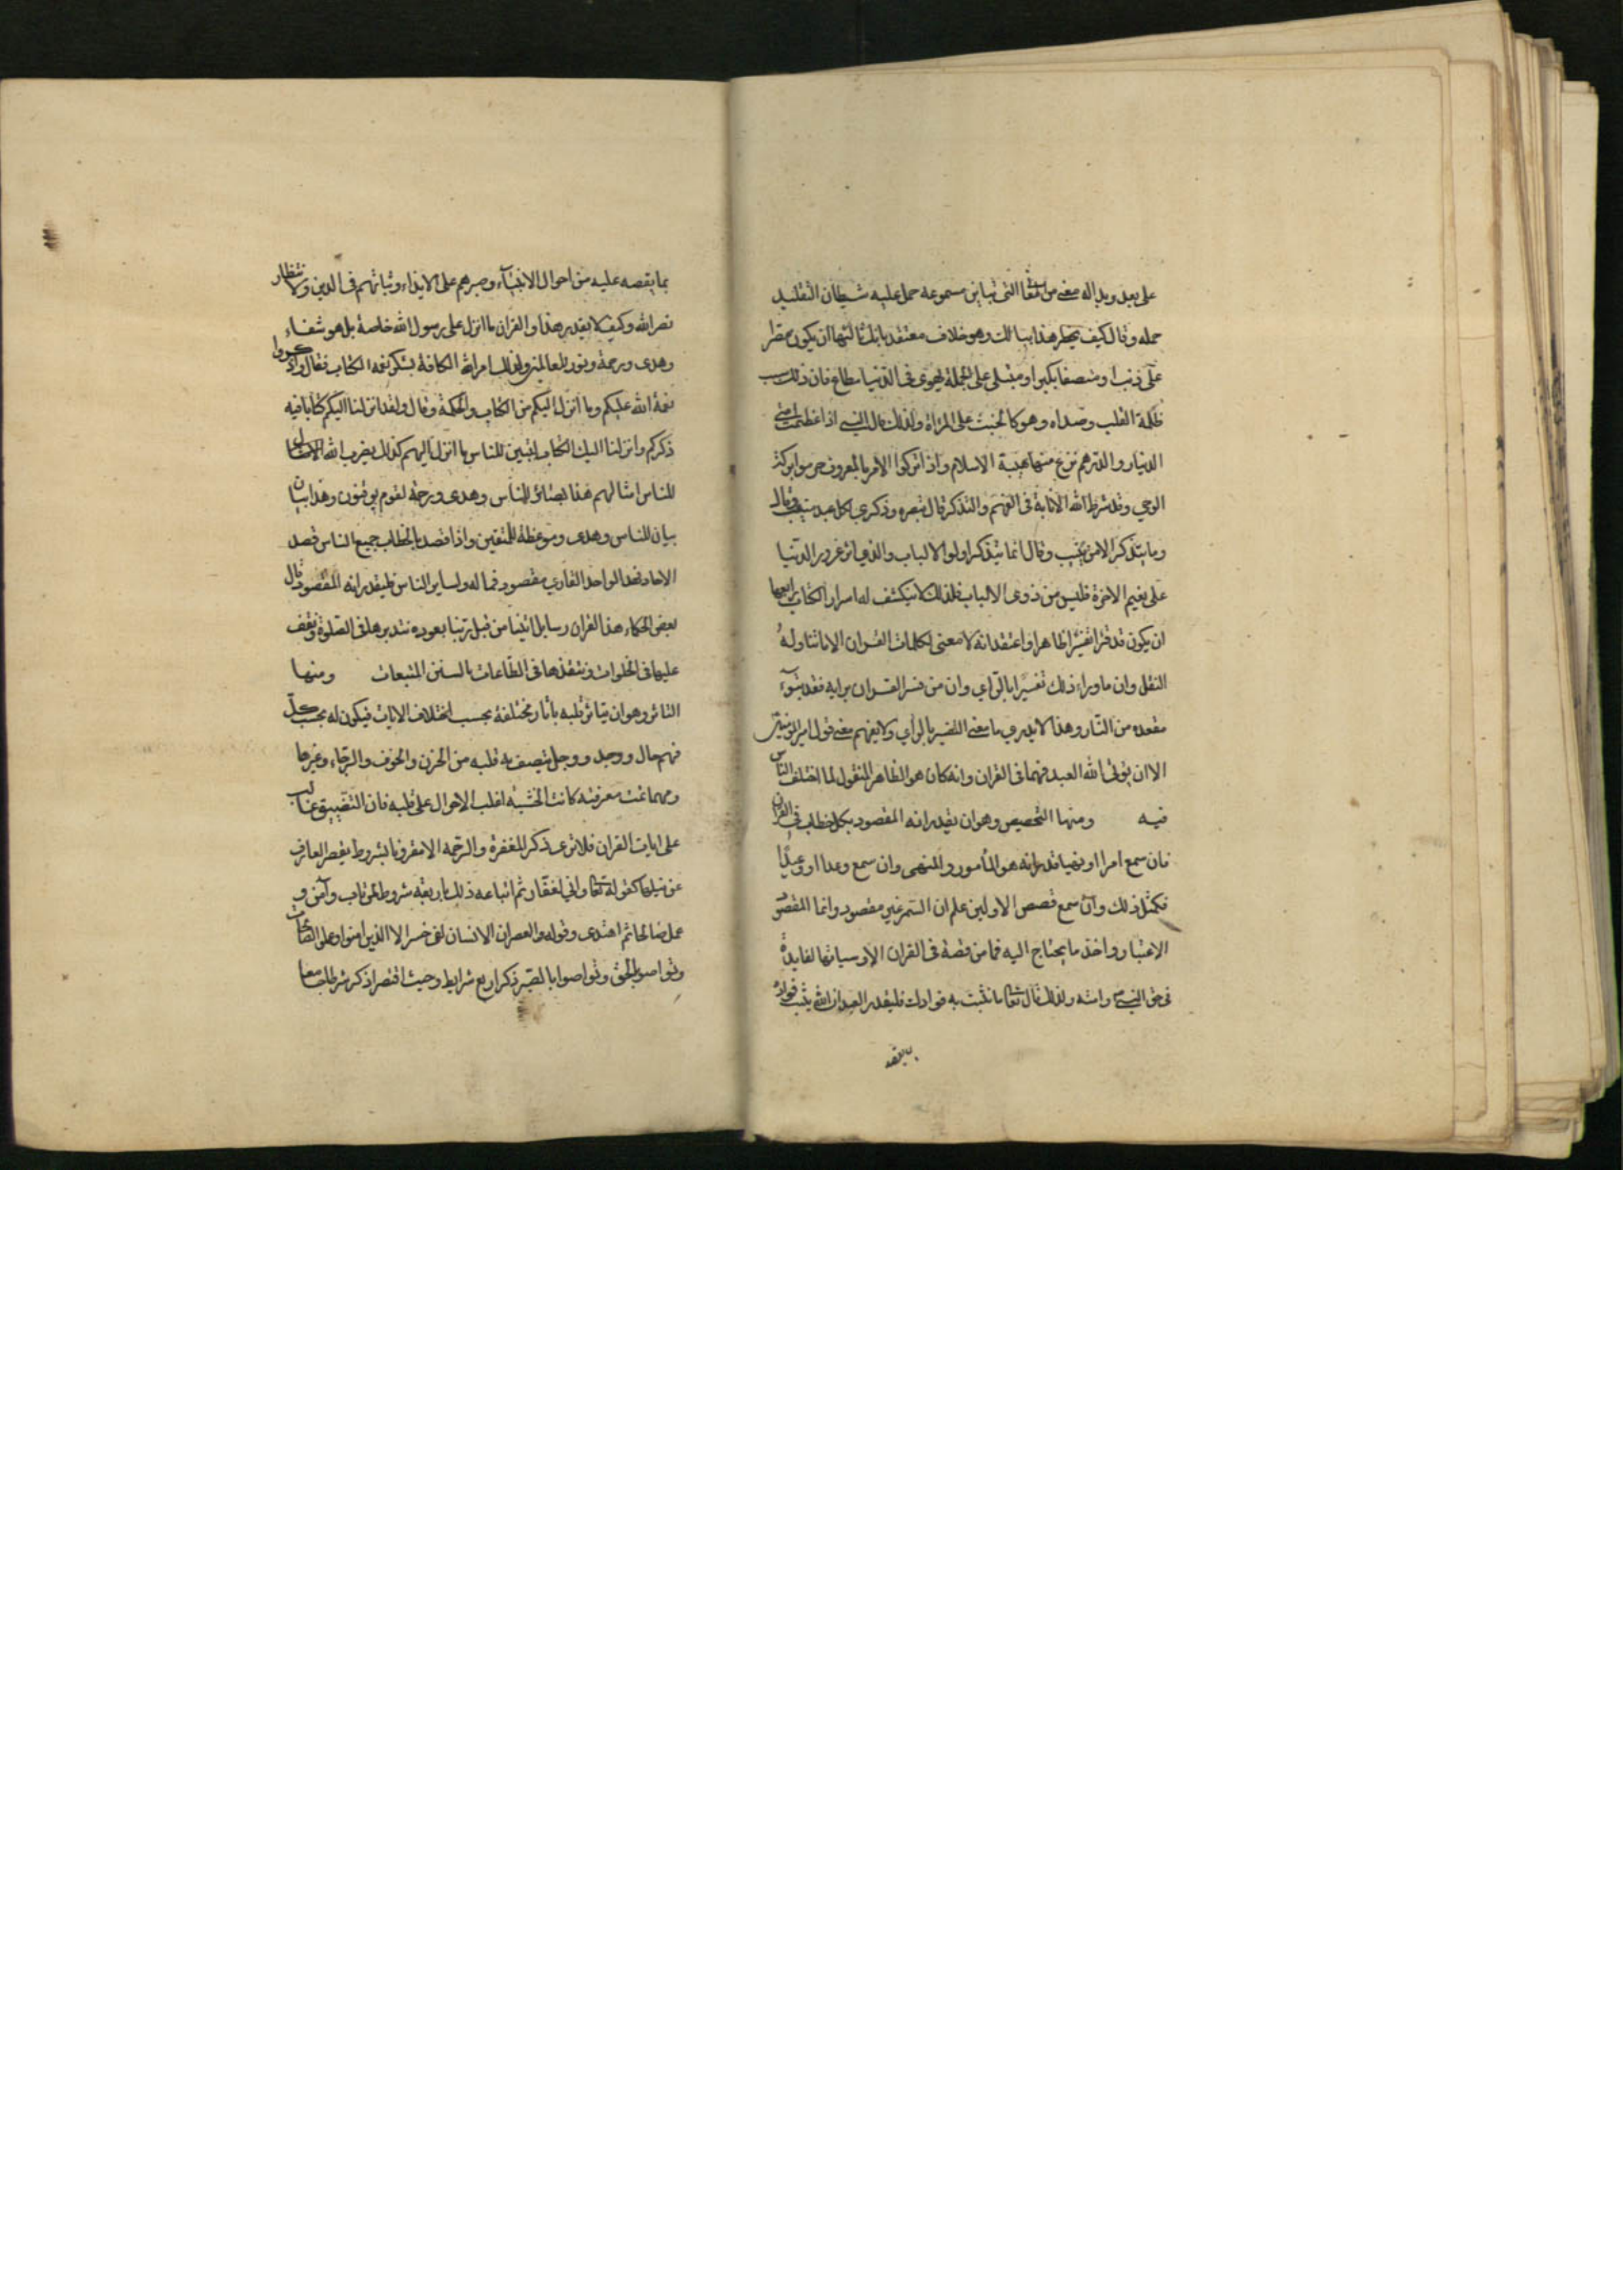 على بعد وبدا له معنى من المعاني التي تباين مسموعه حمل عليه شيطان التقليد
حمله وقال كيف يخطر هذا ببالك وهو خلاف معتقد بابك ثالثها ان يكون مصرا
على ذنب او متصفا بكبر او مبتلى على الجملة بهوى في الدنيا مطاع فان ذلك سبب
ظلمة القلب وصداه وهو كالخبث على المراة ولذلك قال النبي اذا عظمت امتي
الدينار والدرهم نزع منها هيبة الاسلام واذا تركوا الامر بالمعروف حرموا بركة
الوحي وقد شرط الله الانابة في الفهم والتذكر قال تبصره وذكرى لكل عبد منيب وقال
وما يتذكر الا من ينيب وقال انما يتذكر اولوا الالباب والذي اثر غرور الدنيا
على نعيم الاخرة فليس من ذوي الالباب فلذلك لا ينكشف له اسرار الكتاب رابعها
ان يكون قد قرا تفسيرا ظاهرا واعتقد انه لا معنى لكلمات القران الا ما تناوله
النقل وان ما وراء ذلك تفسيرا بالراي وان من فسر القران برايه فقد تبوء
مقعده من النار وهذا لا يدري ما معنى التفسير بالراي ولا يفهم معنى قول امير المومنين
الا ان يؤتى الله العبد فهما في القران وانه كان هو الظاهر المنقول لما اختلف الناس
فيه ومنها التخصيص وهو ان يقدر انه المقصود بكل خطاب في القران
فان سمع امرا او نهيا قدر انه هو المأمور والمنهى وان سمع وعدا او وعيدا
فكمثل ذلك وان سمع قصص الاولين علم ان السمر غير مقصود وانما المقصود
الاعتبار واخذ ما يحتاج اليه فما من قصة في القران الا وسياقها لفايدة
في حق النبي وامته ولذلك قال تعالى ما نثبت به فوادك فليقدر العبد ان الله يثبت فواده
بما يقصه
بما يقصه عليه من احوال الانبياء وصبرهم على الايذاء وثباتهم في الدين ولانتظار
نصر الله وكيف لا يقدر هذا والقران ما انزل على رسول الله خاصة بل هو شفاء
وهدى ورحمة ونور للعالمين ولذلك امر الله الكافة بشكر نعمه الكتاب فقال واذكروا
نعمة الله عليكم وما انزل اليكم من الكتاب والحكمة وقال ولقد انزلنا اليكم كتابا فيه
ذكركم وانزلنا اليك الكتاب لتبين للناس ما انزل اليهم كذلك يضرب الله الامثال
للناس امثالهم هذا بصائر للناس وهدى ورحمة لقوم يوقنون وهذا بيان
بيان للناس وهدى وموعظة للمتقين واذا قصد بالخطاب جميع الناس قصد
الاحاد فهذا الواحد القاري مقصود فما له ولساير الناس فليقدر انه المقصود قال
بعض الحكماء هذا القران رسايل اتينا من قبل ربنا بعهوده نتدبرها في الصلوة ونقف
عليها في الخلوات وننفذها في الطاعات بالسنن المتبعات ومنها
التاثر وهو ان يتاثر قلبه باثار مختلفة بحسب اختلاف الايات فيكون له بحسب كل
فهم حال ووجد ووجل يتصف به قلبه من الحزن والخوف والرجاء وغيرها
ومهما تمت معرفته كانت الخشية اغلب الاحوال على قلبه فان التضييق غالب
على ايات القران فلا ترى ذكر المغفرة والرحمة الا مقرونا بشروط يقصر العارف
عن نيلها كقوله تعالى واني لغفار ثم اتباعه ذلك باربعة شروط لمن تاب وآمن و
عمل صالحا ثم اهتدى وقوله والعصر ان الانسان لفي خسر الا الذين امنوا وعملوا الصالحات
وتواصوا بالحق وتواصوا بالصبر ذكر اربع شرايط وحيث اقتصر ذكر شرطا جامعا